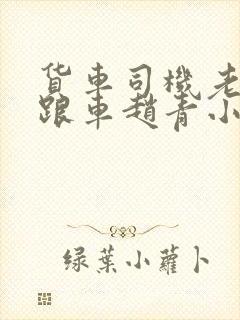 货车司機老
跟車趙青小
绿葉小蘿卜